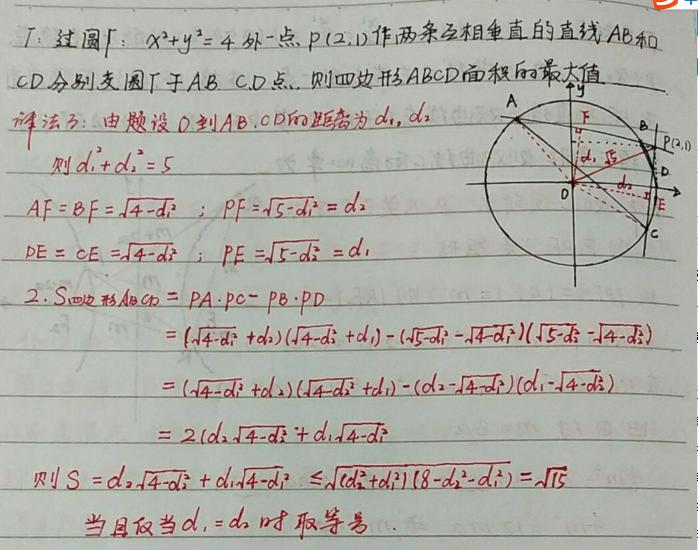 1: 过圆Γ: x²+y²=4 外一点 P(2,1)作两条互相垂直的直线AB和
CD分别交圆Γ于A B C.D点.则四边形ABCD面积的最大值
详法3: 由题设 O到AB.CD的距离为d₁, d₂
则d₁²+d₂²=5
AF=BF=√(4-d₁²) ; PF=√(5-d₁²)=d₂
DE=CE=√(4-d₂²) ; PE=√(5-d₂²)=d₁
2.S四边形ABCD=PA·PC-PB·PD
=(√(4-d₁²)+d₂)(√(4-d₂²)+d₁)-(√(5-d₁²)-√(4-d₁²))(√(5-d₂²)-√(4-d₂²))
=(√(4-d₁²)+d₂)(√(4-d₂²)+d₁)-(d₂-√(4-d₁²))(d₁-√(4-d₂²))
=2(d₂√(4-d₂²)+d₁√(4-d₁²)
则S=d₂√(4-d₂²)+d₁√(4-d₁²) ≤√((d₂²+d₁²)(8-d₂²-d₁²))=√15
当且仅当d₁=d₂时取等号.
y
A
F
B
P(2,1)
d₁
√5
D
d₂
O
E
C